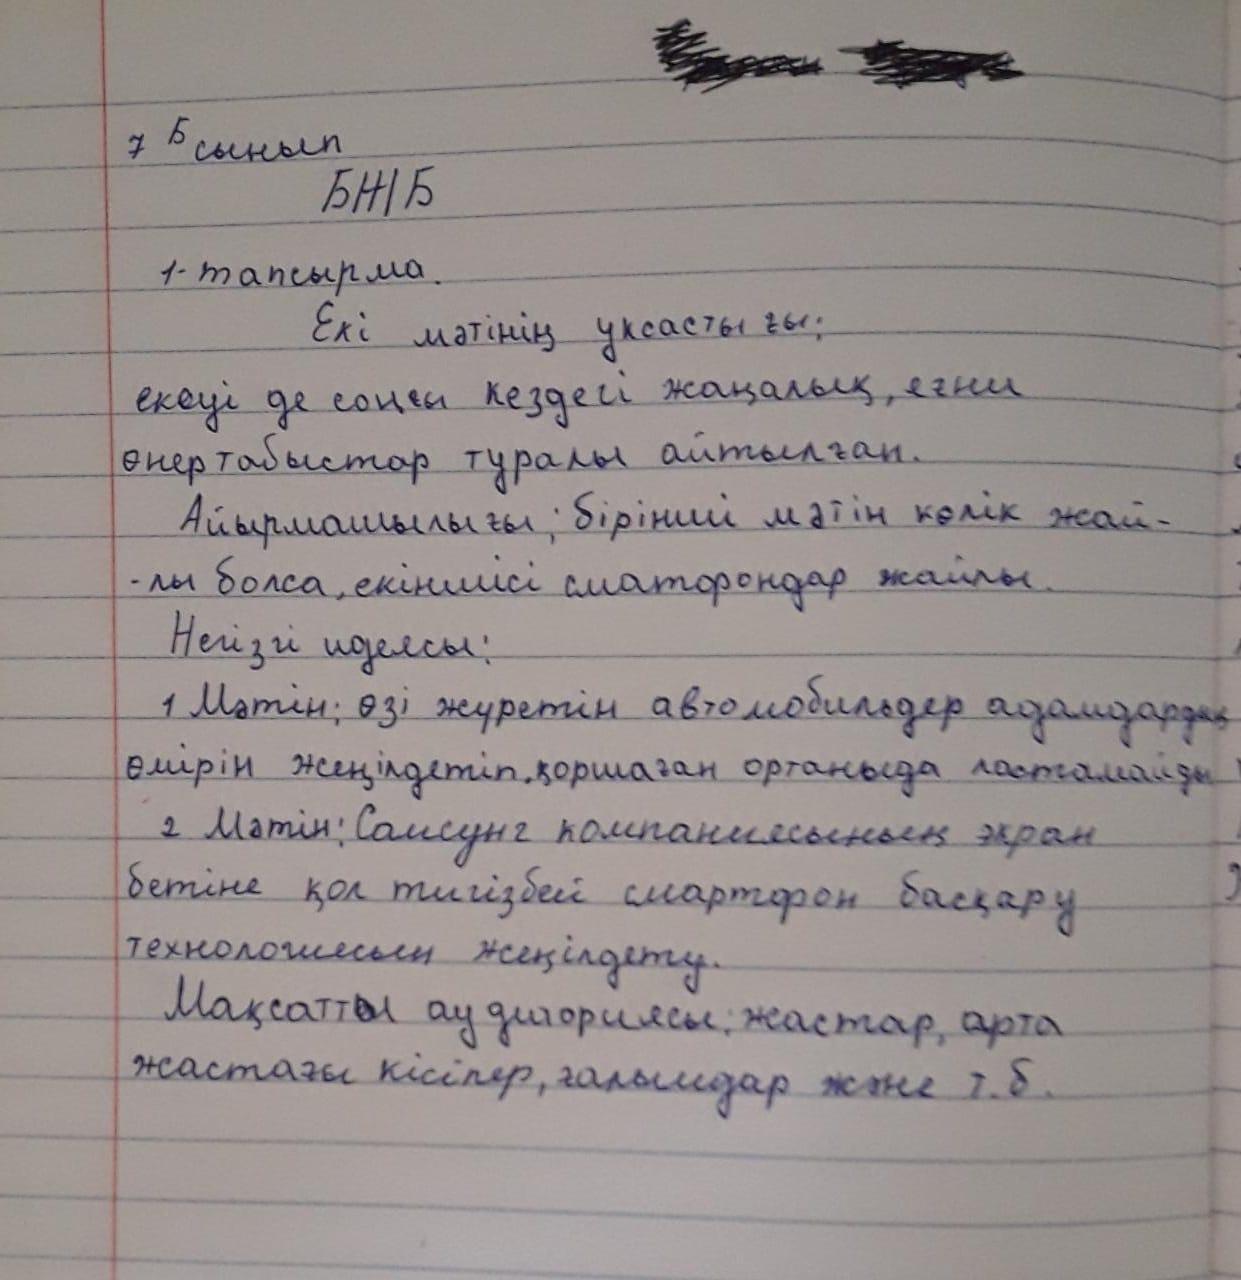 7 Б сынып
БЖБ
1-тапсырма.
Екі мәтінің ұқсастығы:
екеуі де соңғы кездегі жаңалық, яғни
өнертабыстар туралы айтылған.
Айырмашылығы; бірінші мәтін көлік жай-
-лы болса, екіншісі сматфондар жайлы.
Негізгі идеясы:
1 Мәтін: өзі жүретін автомобильдер адамдардың
өмірін жеңілдетіп, қоршаған ортаныда ластамайды
2 Мәтін: Самсунг компаниясының экран
бетіне қол тигізбей смартфон басқару
технологиясын жеңілдету.
Мақсатты аудиториясы: жастар, арта
жастағы кісілер, ғалымдар және т.б.